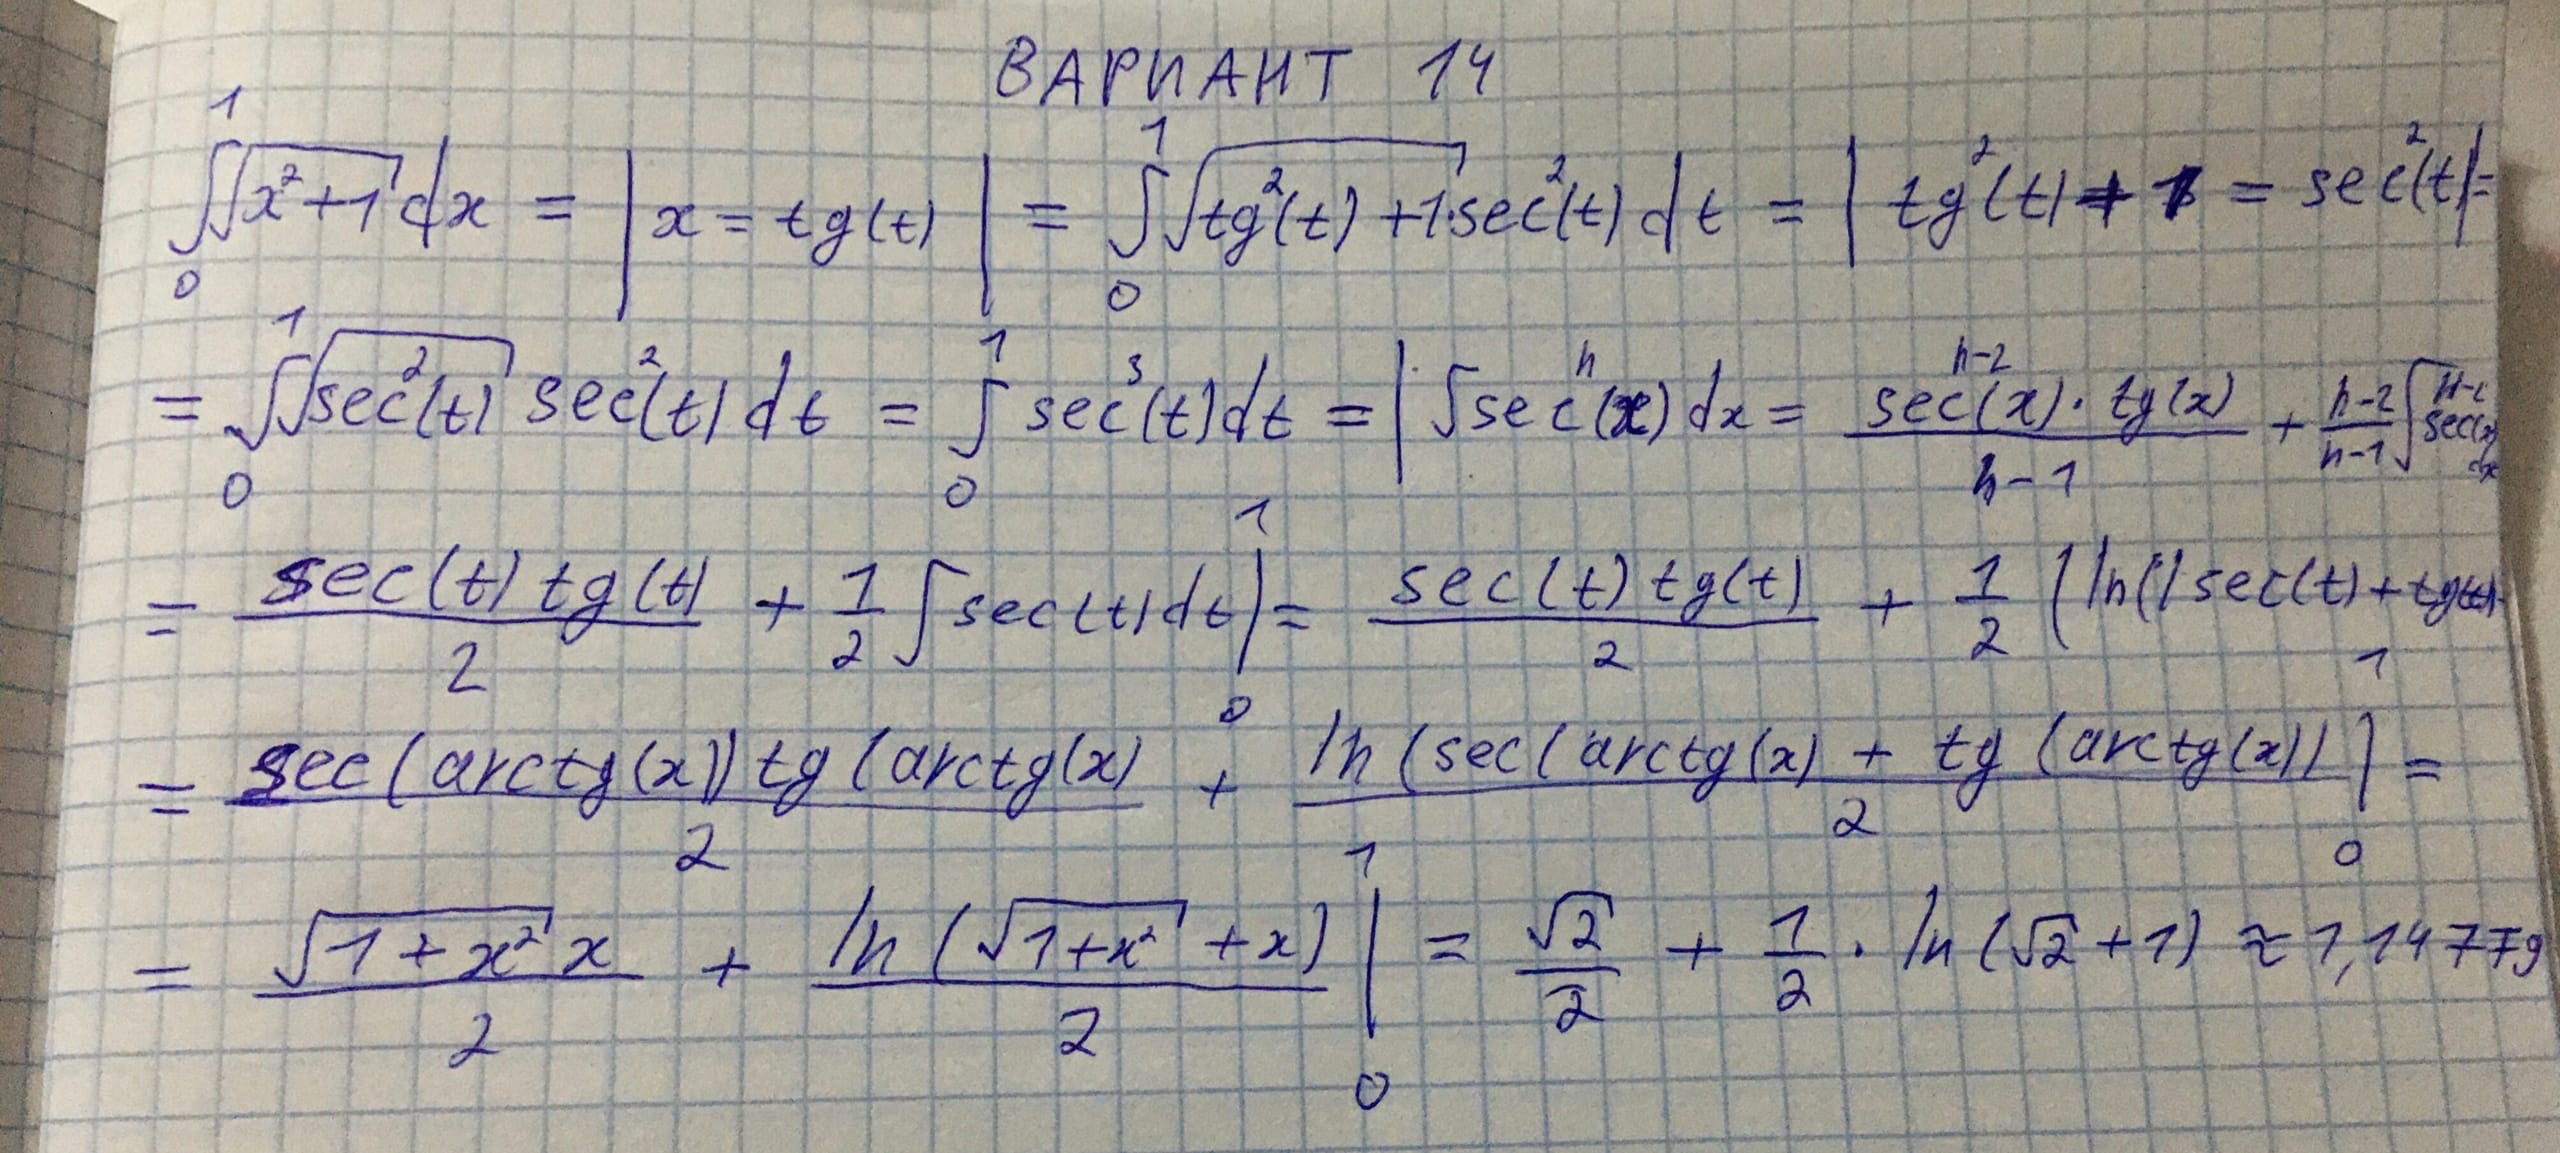 ВАРИАНТ 14
∫₀¹ √(x²+1) dx = | x = tg(t) | = ∫₀¹ √(tg²(t)+1)·sec²(t) dt = | tg²(t)+1 = sec²(t) | =
= ∫₀¹ √(sec²(t)) sec²(t) dt = ∫₀¹ sec³(t) dt = | ∫secⁿ(x) dx = (secⁿ⁻²(x)·tg(x))/(n-1) + (n-2)/(n-1) ∫ secⁿ⁻²(x) dx
= (sec(t) tg(t))/2 + 1/2 ∫ sec(t) dt |₀¹ = (sec(t) tg(t))/2 + 1/2 (ln(|sec(t) + tg(t)
= (sec(arctg(x)) tg(arctg(x))/2 + (ln(sec(arctg(x) + tg(arctg(x)))/2 |₀¹ =
= (√(1+x²) x)/2 + (ln(√(1+x²) + x))/2 |₀¹ = √2/2 + 1/2 · ln(√2+1) ≈ 1,14779